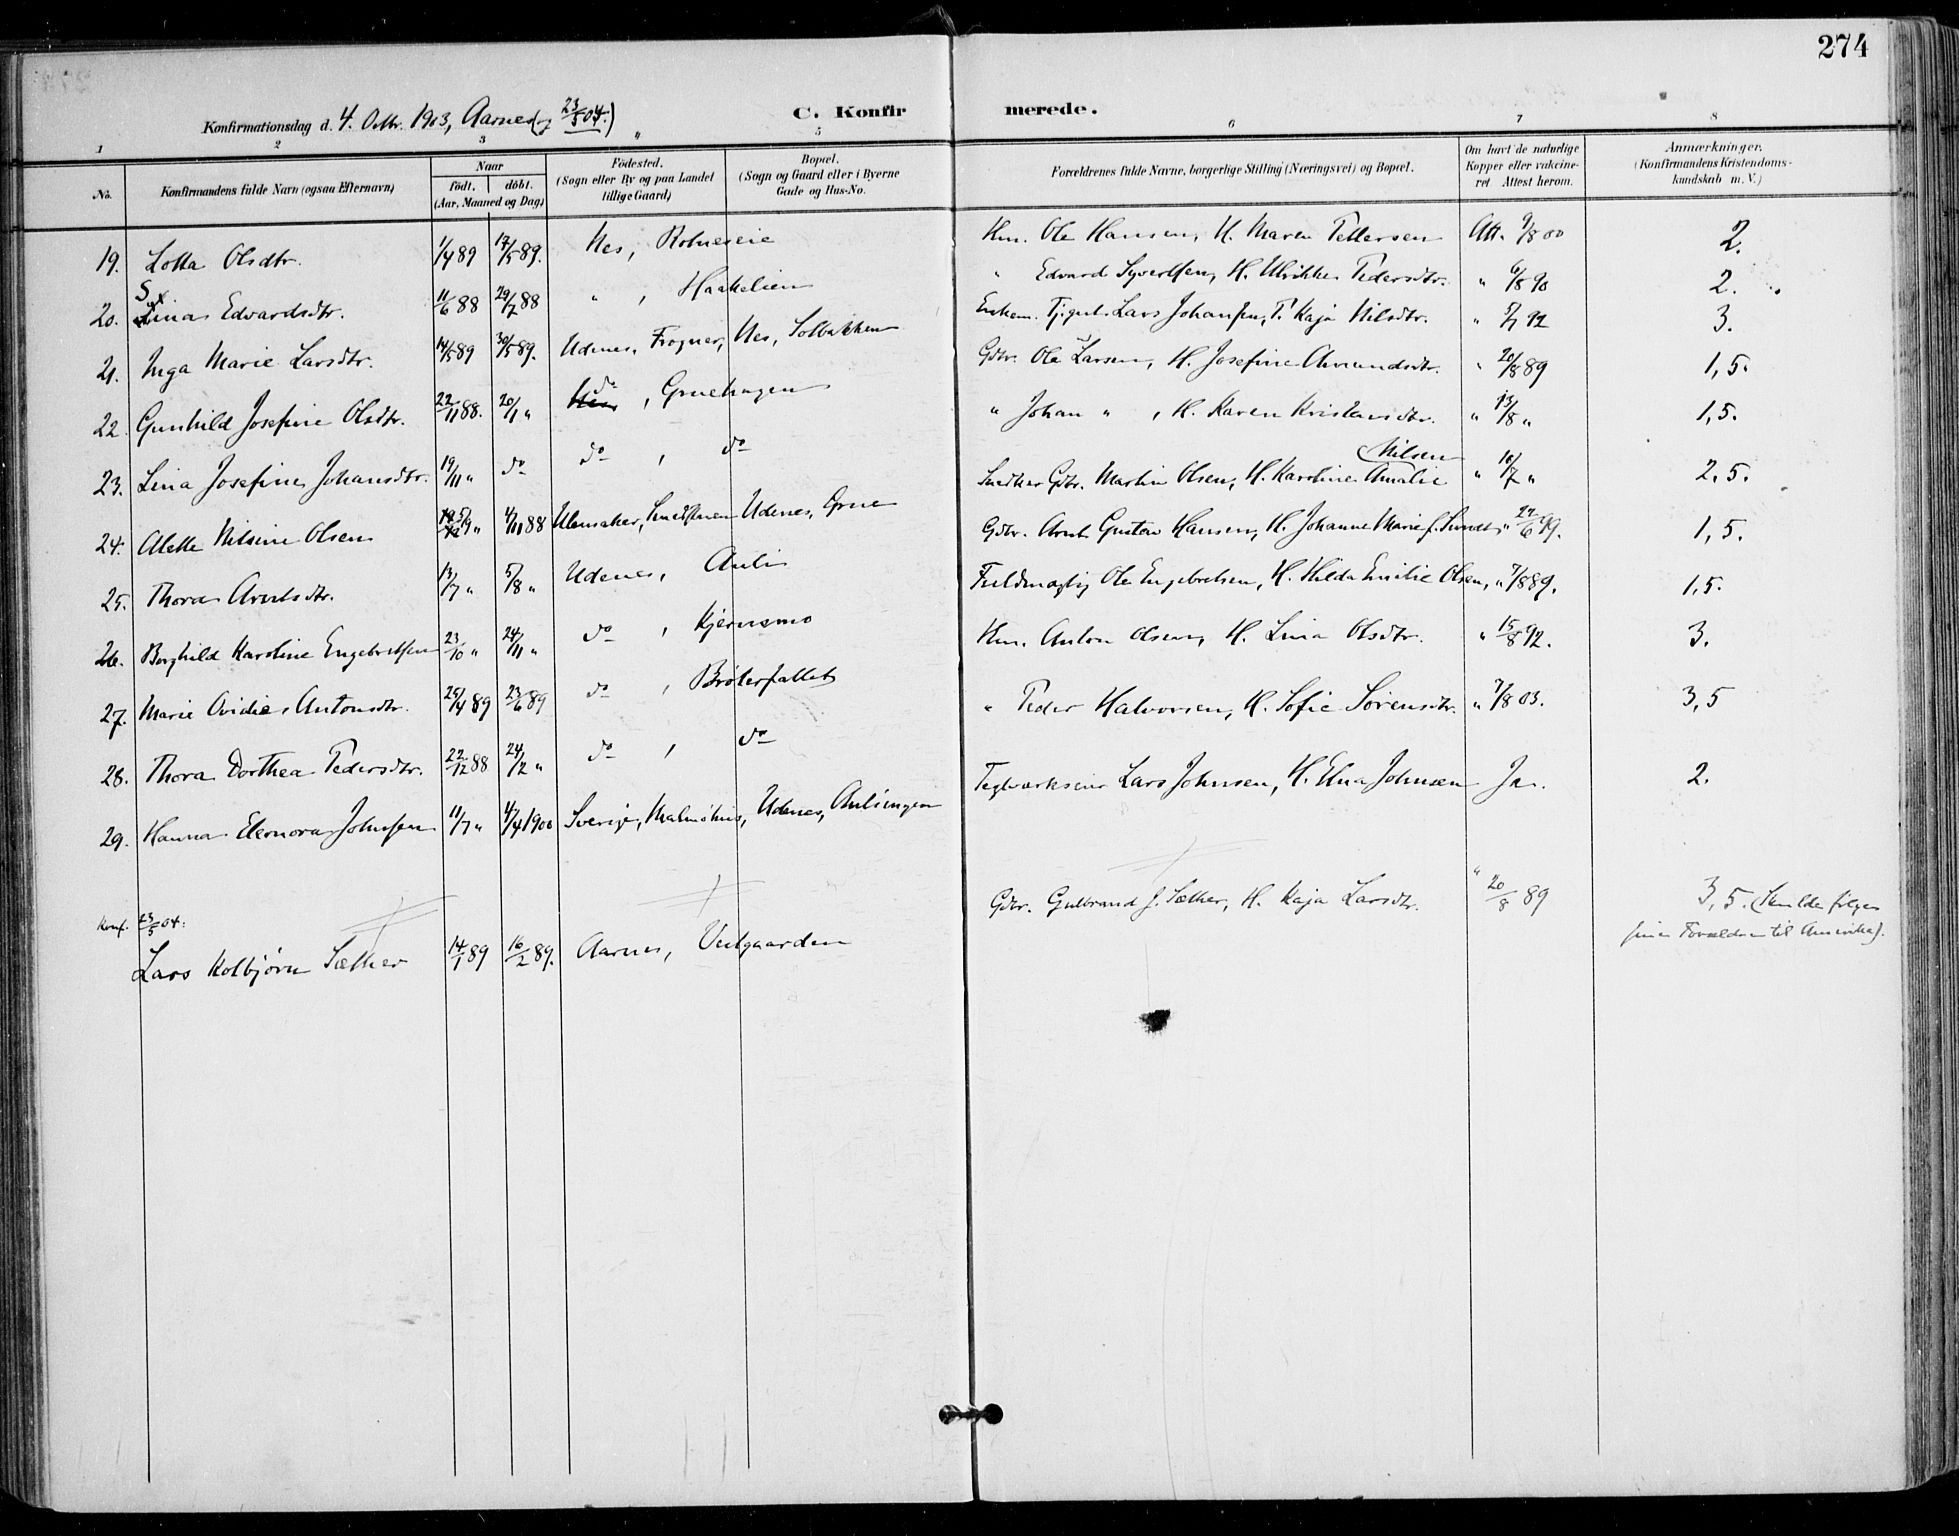 274
Konfirmationsdag d. 4. Oktbr. 1903, Aarnes (og 23/5 04.) C. Konfirmerede.
1 2 3 " 5 6 7 8
No. Konfirmandens fulde Navn (ogsaa Efternavn) Naar födt. döbt. (Aar, Maaned og Dag) Födested. (Sogn eller By og paa Landet tillige Gaard) Bopæl. (Sogn og Gaard eller i Byerne Gade og Hus-No. Forældrenes fulde Navne, borgerlige Stilling (Næringsvei) og Bopæl. Om havt de naturlige Kopper eller vakcineret Attest herom. Anmærkninger. (Konfirmandens Kristendomskundskab m. V.)
19. Lotta Olsdtr. 1/4 89 17/5 89. Nes, Hm. Ole Hansen, H. Maren Pettersen Att. 9/8 00 2.
20. Edvardsdtr. 11/6 88 29/7 88 " , Haakelien " Edvard Syvertsen, H. Ulrikke Pedersdtr. " 6/8 90 2.
21. Inga Marie Larsdtr. 14/5 89 30/5 89. Udenes, Frogner, Nes, Solbakken Lars Johansen, T. Kaja Nilsdtr. " 92 3.
22. Gunhild Josefine Olsdtr. 22/11 88. 20/1 " do , Gruehagen Gdbr. Ole Larsen, H. Josefine Amundsdtr. " 20/8 89 1,5.
23. Lina Josefine Johansdtr. 19/11 " do do , do " Johan " , H. Karen Kristiansdtr. " 13/8 " 1,5.
24. Alette Nilsine Olsen 9 " 4/11 88 Ullensaker, Udenes, Grue Snedker Gdbr. Martin Olsen, H. Karoline Amalie Nilsen " 10/7 " 2,5.
25. Thora Arntsdtr. 13/7 " 5/8 " Udenes, Aulie Gdbr. Arnt Gustav Hansen, H. Johanne Marie f. Sundt " 27/6 99. 1,5.
26. Borghild Karoline Engebretsen 23/10 " 24/11 " do , Kjernsmo Fuldmægtig Ole Engebretsen, H. Hilda Emilie Olsen, " 7/8 89. 1,5.
27. Marie Ovidie Antonsdtr. 25/4 89 23/6 89 do , Bröterfallet Hm. Anton Olsen, H. Lina Olsdtr. " 15/8 92. 3.
28. Thora Dorthea Pedersdtr. 22/12 88 24/2 " do , do " Peder Halvorsen, H. Sofie Sörensdtr. " 7/8 03. 3,5
29. Hanna Eleonora Johnsen 11/7 " 4/4 1900 Sverige, Malmöhus, Udenes, Auliengen Lars Johnsen, H. Elna Johnsen Ja. 2.
Konf. 23/5 04:
Lars Kolbjörn Sæther 14/1 89 16/2 89. Aarnes, Vestgaarden Gdbr. Gulbrand J. Sæther, H. Kaja Larsdtr. " 20/8 89 3,5. (Skulde fölge
sine Forældre til Amerika).